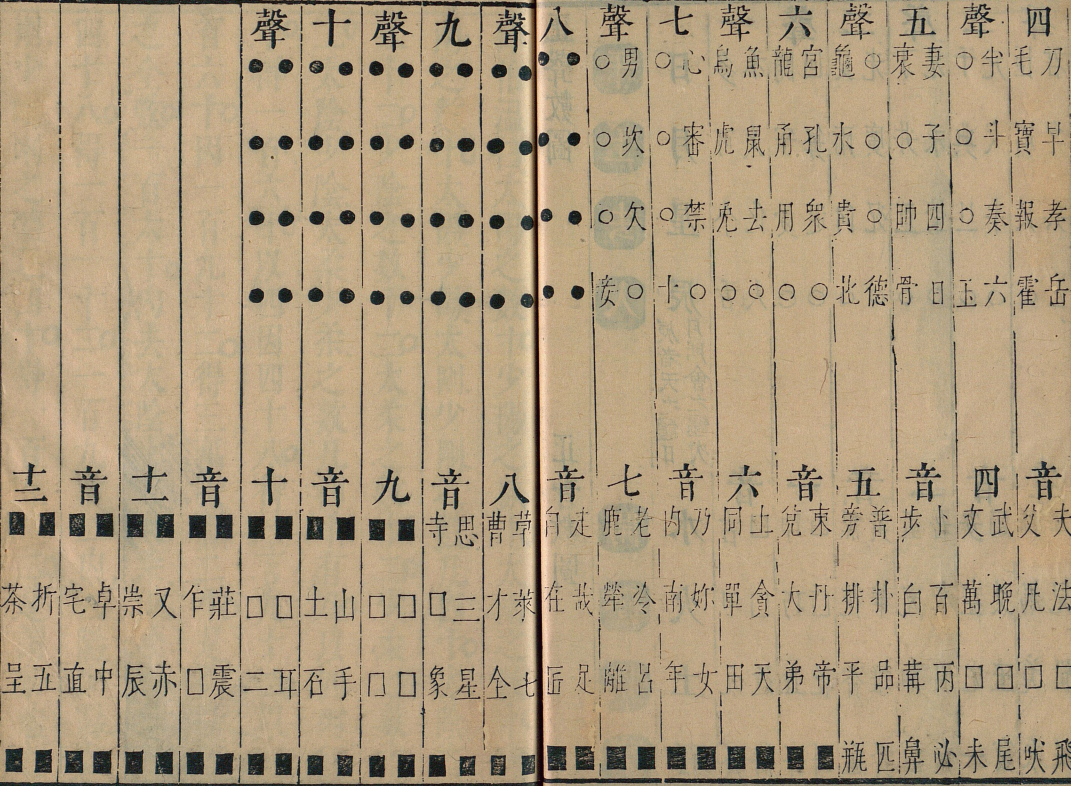 四聲五聲六聲七聲八聲九聲十聲
刀早孝岳
毛寶報霍
牛斗奏六
○○○玉
妻子四日
衰○帥骨
○○○德
龜水貴北
宮孔衆○
龍甬用○
魚鼠去○
烏虎兔○
心審禁○
○○○十
男坎欠○
○○○妾
●●●●
●●●●
●●●●
●●●●
●●●●
●●●●
●●●●
●●●●
●●●●
●●●●
●●●●
●●●●
音四音五音六音七音八音九音十音十一音十二
夫法□飛
父凡□吠
武晚□尾
文萬□未
卜百丙必
步白鼻
普扑品匹
旁排平瓶
東丹帝■
兌大弟■
土貪天■
同單田■
乃妳女■
內南年■
老冷呂■
鹿犖離■
走哉足■
自在匠■
草菜七■
曹才全■
思三星■
寺□象■
■□□■
■□□■
■山手■
■士石■
■□耳■
■□二■
■莊震■
■乍□■
■叉赤■
■崇辰■
■卓中■
■宅直■
■折五■
■茶呈■